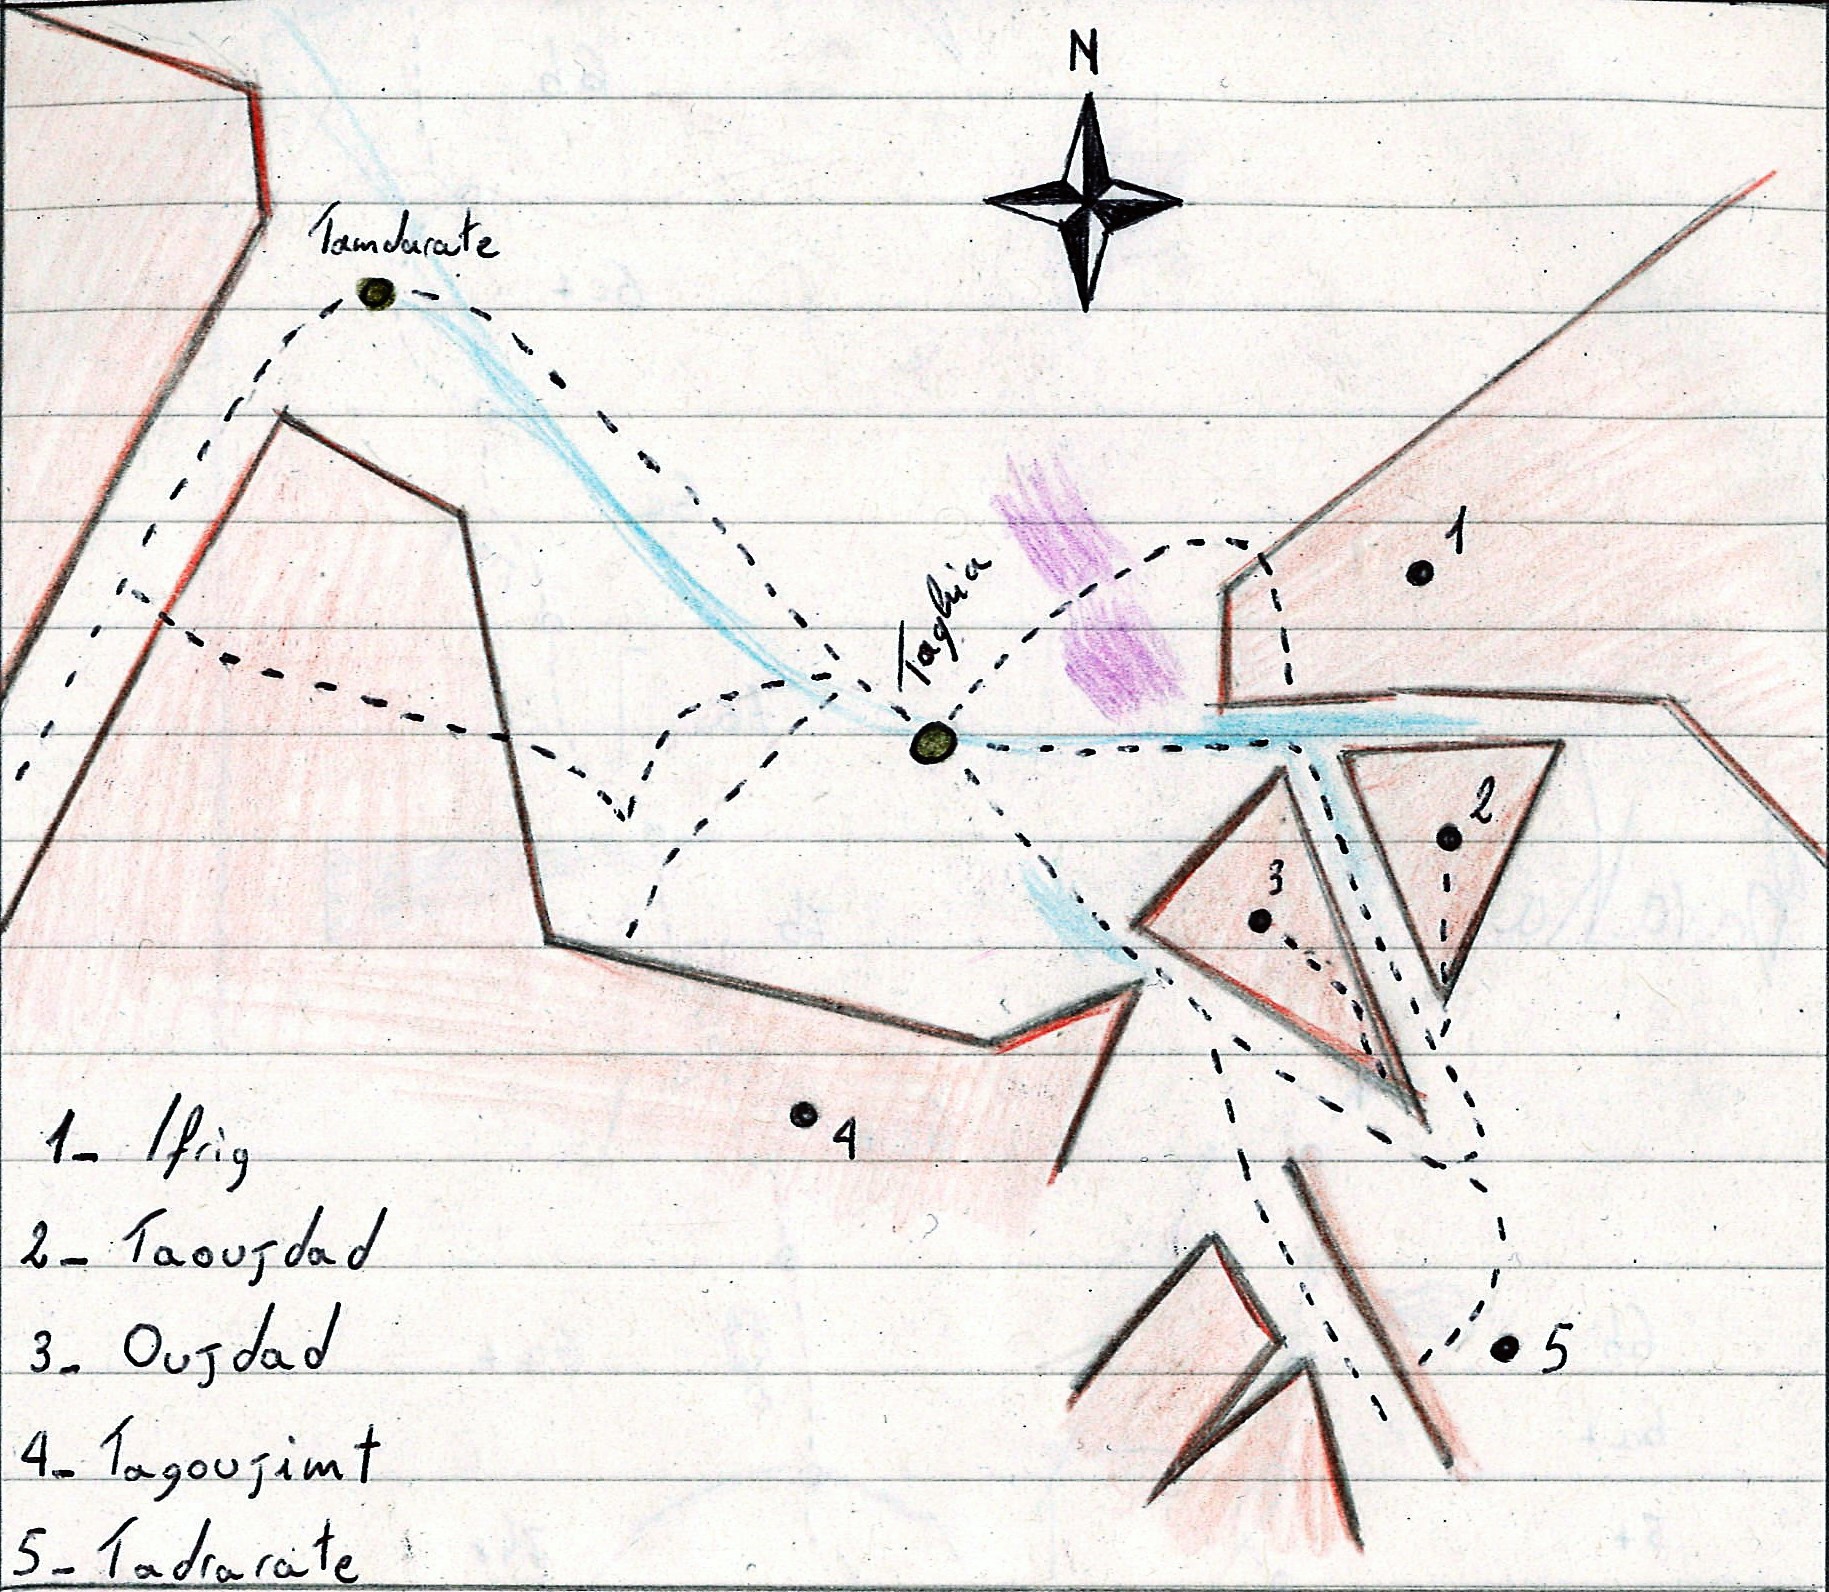 N
Tamdarate
Taghia
1
2
3
4
5
1- Ifrig
2- Taoujdad
3- Oujdad
4- Tagoujimt
5- Tadrarate